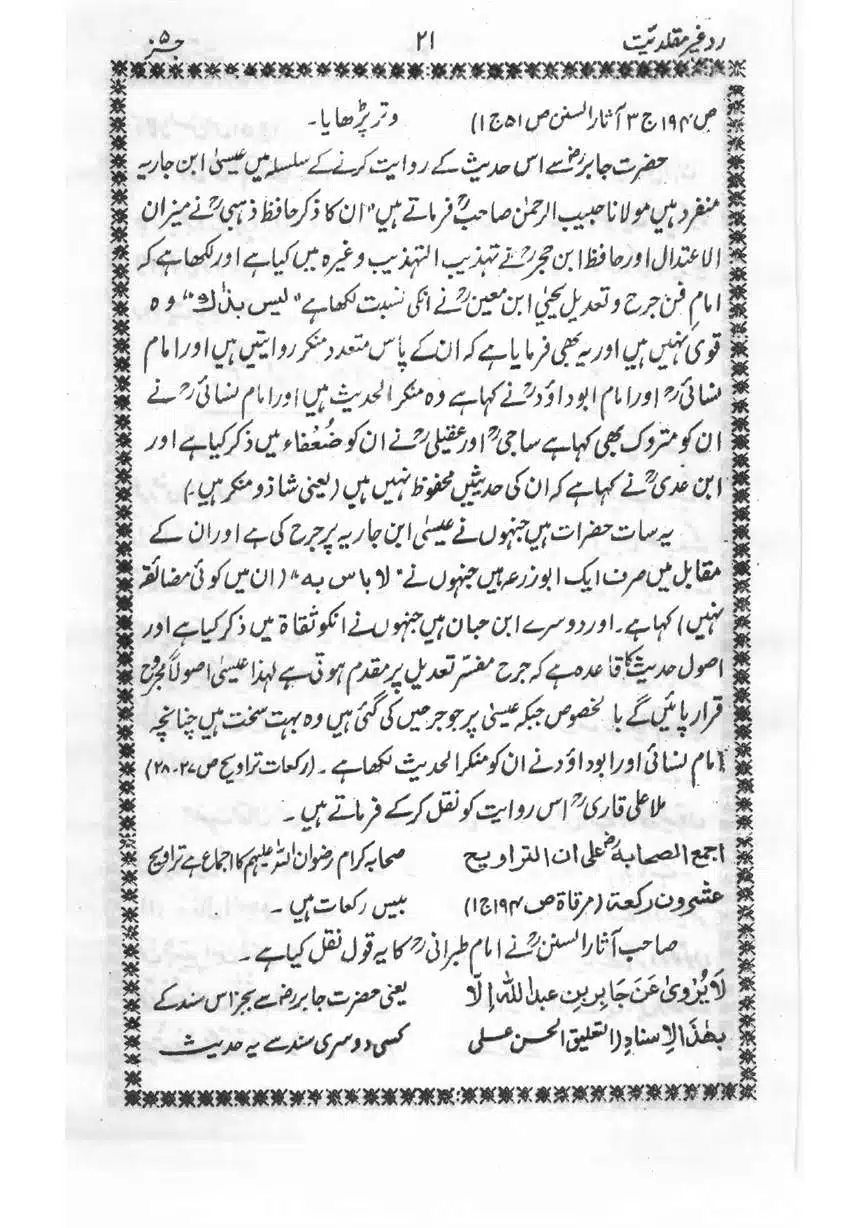 رد غیر مقلدیّت ۲۱ جز ۵
ص ۱۹۴ ج ۳ آثار السنن ص ۵۱ ج ۱) وتر پڑھایا۔
حضرت جابرؓ سے اس حدیث کے روایت کرنے کے سلسلہ میں عیسیٰ ابن جاریہ
منفرد ہیں مولانا حبیب الرحمٰن صاحبؒ فرماتے ہیں "ان کا ذکر حافظ ذہبیؒ نے میزان
الاعتدال اور حافظ ابن حجرؒ نے تہذیب التہذیب وغیرہ میں کیا ہے اور لکھا ہے کہ
امام فن جرح و تعدیل یحییٰ ابن معینؒ نے انکی نسبت لکھا ہے "لیس بذاك" وہ
قوی نہیں ہیں اور یہ بھی فرمایا ہے کہ ان کے پاس متعدد منکر روایتیں ہیں اور امام
نسائیؒ اور امام ابوداؤدؒ نے کہا ہے وہ منکر الحدیث ہیں اور امام نسائیؒ نے
ان کو متروک بھی کہا ہے ساجیؒ اور عقیلیؒ نے ان کو ضُعفاء میں ذکر کیا ہے اور
ابن عدیؒ نے کہا ہے کہ ان کی حدیثیں محفوظ نہیں ہیں (یعنی شاذ و منکر ہیں۔)
یہ سات حضرات ہیں جنہوں نے عیسیٰ ابن جاریہ پر جرح کی ہے اور ان کے
مقابل میں صرف ایک ابوزرعہ ہیں جنہوں نے "لا باس به" (ان میں کوئی مضائقہ
نہیں) کہا ہے۔ اور دوسرے ابن حبان ہیں جنہوں نے انکو ثقاة میں ذکر کیا ہے اور
اصول حدیث کا قاعدہ ہے کہ جرح مفسّر تعدیل پر مقدم ہوتی ہے لہذا عیسیٰ اصولاً مجروح
قرار پائیں گے بالخصوص جبکہ عیسیٰ پر جو جرحیں کی گئی ہیں وہ بہت سخت ہیں چنانچہ
امام نسائی اور ابوداؤد نے ان کو منکر الحدیث لکھا ہے۔ (رکعات تراویح ص ۲۷-۲۸)
ملا علی قاریؒ اس روایت کو نقل کر کے فرماتے ہیں۔
اجمع الصحابةؓ علی ان التراویح صحابہ کرام رضوان اللہ علیہم کا اجماع ہے تراویح
عشرون رکعة (مرقاة ص ۱۹۴ ج ۱) بیس رکعات ہیں۔
صاحب آثار السننؒ نے امام طبرانیؒ کا یہ قول نقل کیا ہے۔
لَا یُرْوىٰ عَنْ جَابِر بِنِ عبداللّٰه اِلَّا یعنی حضرت جابرؓ سے بجز اس سند کے
بهٰذَ الإسنادِ (التعلیق الحسن علی کسی دوسری سند سے یہ حدیث